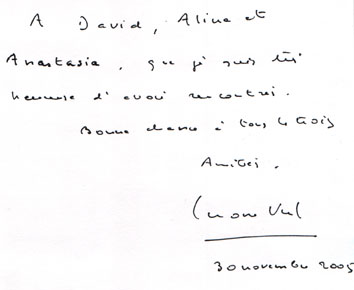 A David, Alina et
Anastasia, que j'ai suis très
heureuse d'avoir rencontré.
Bonne chance à tous les trois
Amitiés.
Simone Veil
30 novembre 2005